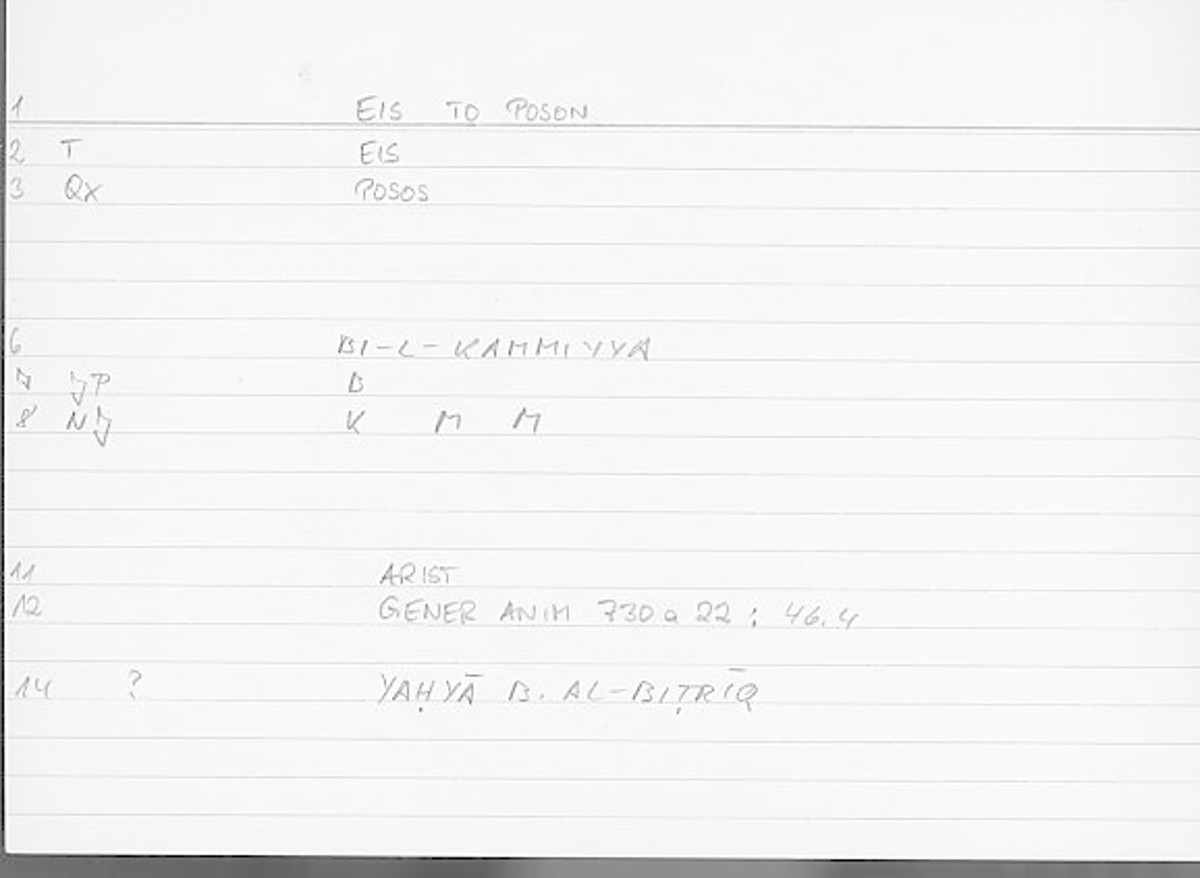 1 EIS TO POSON
2 T EIS
3 Qx POSOS
6 BI-L-KAMMIYYA
7 JP B
8 NJ K M M
11 ARIST
12 GENER ANIM 730 a 22 : 46.4
14 ? YAḤYĀ B. AL-BIṬRĪQ